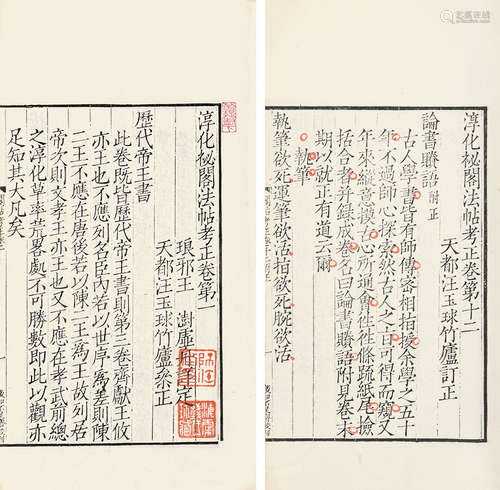 淳化秘閣法帖考正卷第十二
天都汪玉球竹廬訂正
論書賸語 附正
古人學書皆有師傳密相指授余學之五十
年不過師心探索然古人之旨可得而窺又
年來縱意模古心所通會往往條疏紙尾撿
括合者并録成卷名曰論書賸語附見卷末
期以就正有道云爾
執筆
執筆欲死運筆欲活指欲死腕欲活
淳化秘閣法帖考正卷第一
琅邪王 澍虛舟詳定
天都汪玉球竹廬叅正
歷代帝王書
此卷既皆歷代帝王書則第三卷齊獻王攸
亦王也不應列名臣內若以世序爲差則陳
二王不應在唐後若以陳二王爲王故列
帝次則文孝王亦王也又不應在孝武前總
之淳化草率荒畧處不可勝數即此以觀亦
足知其大凡矣